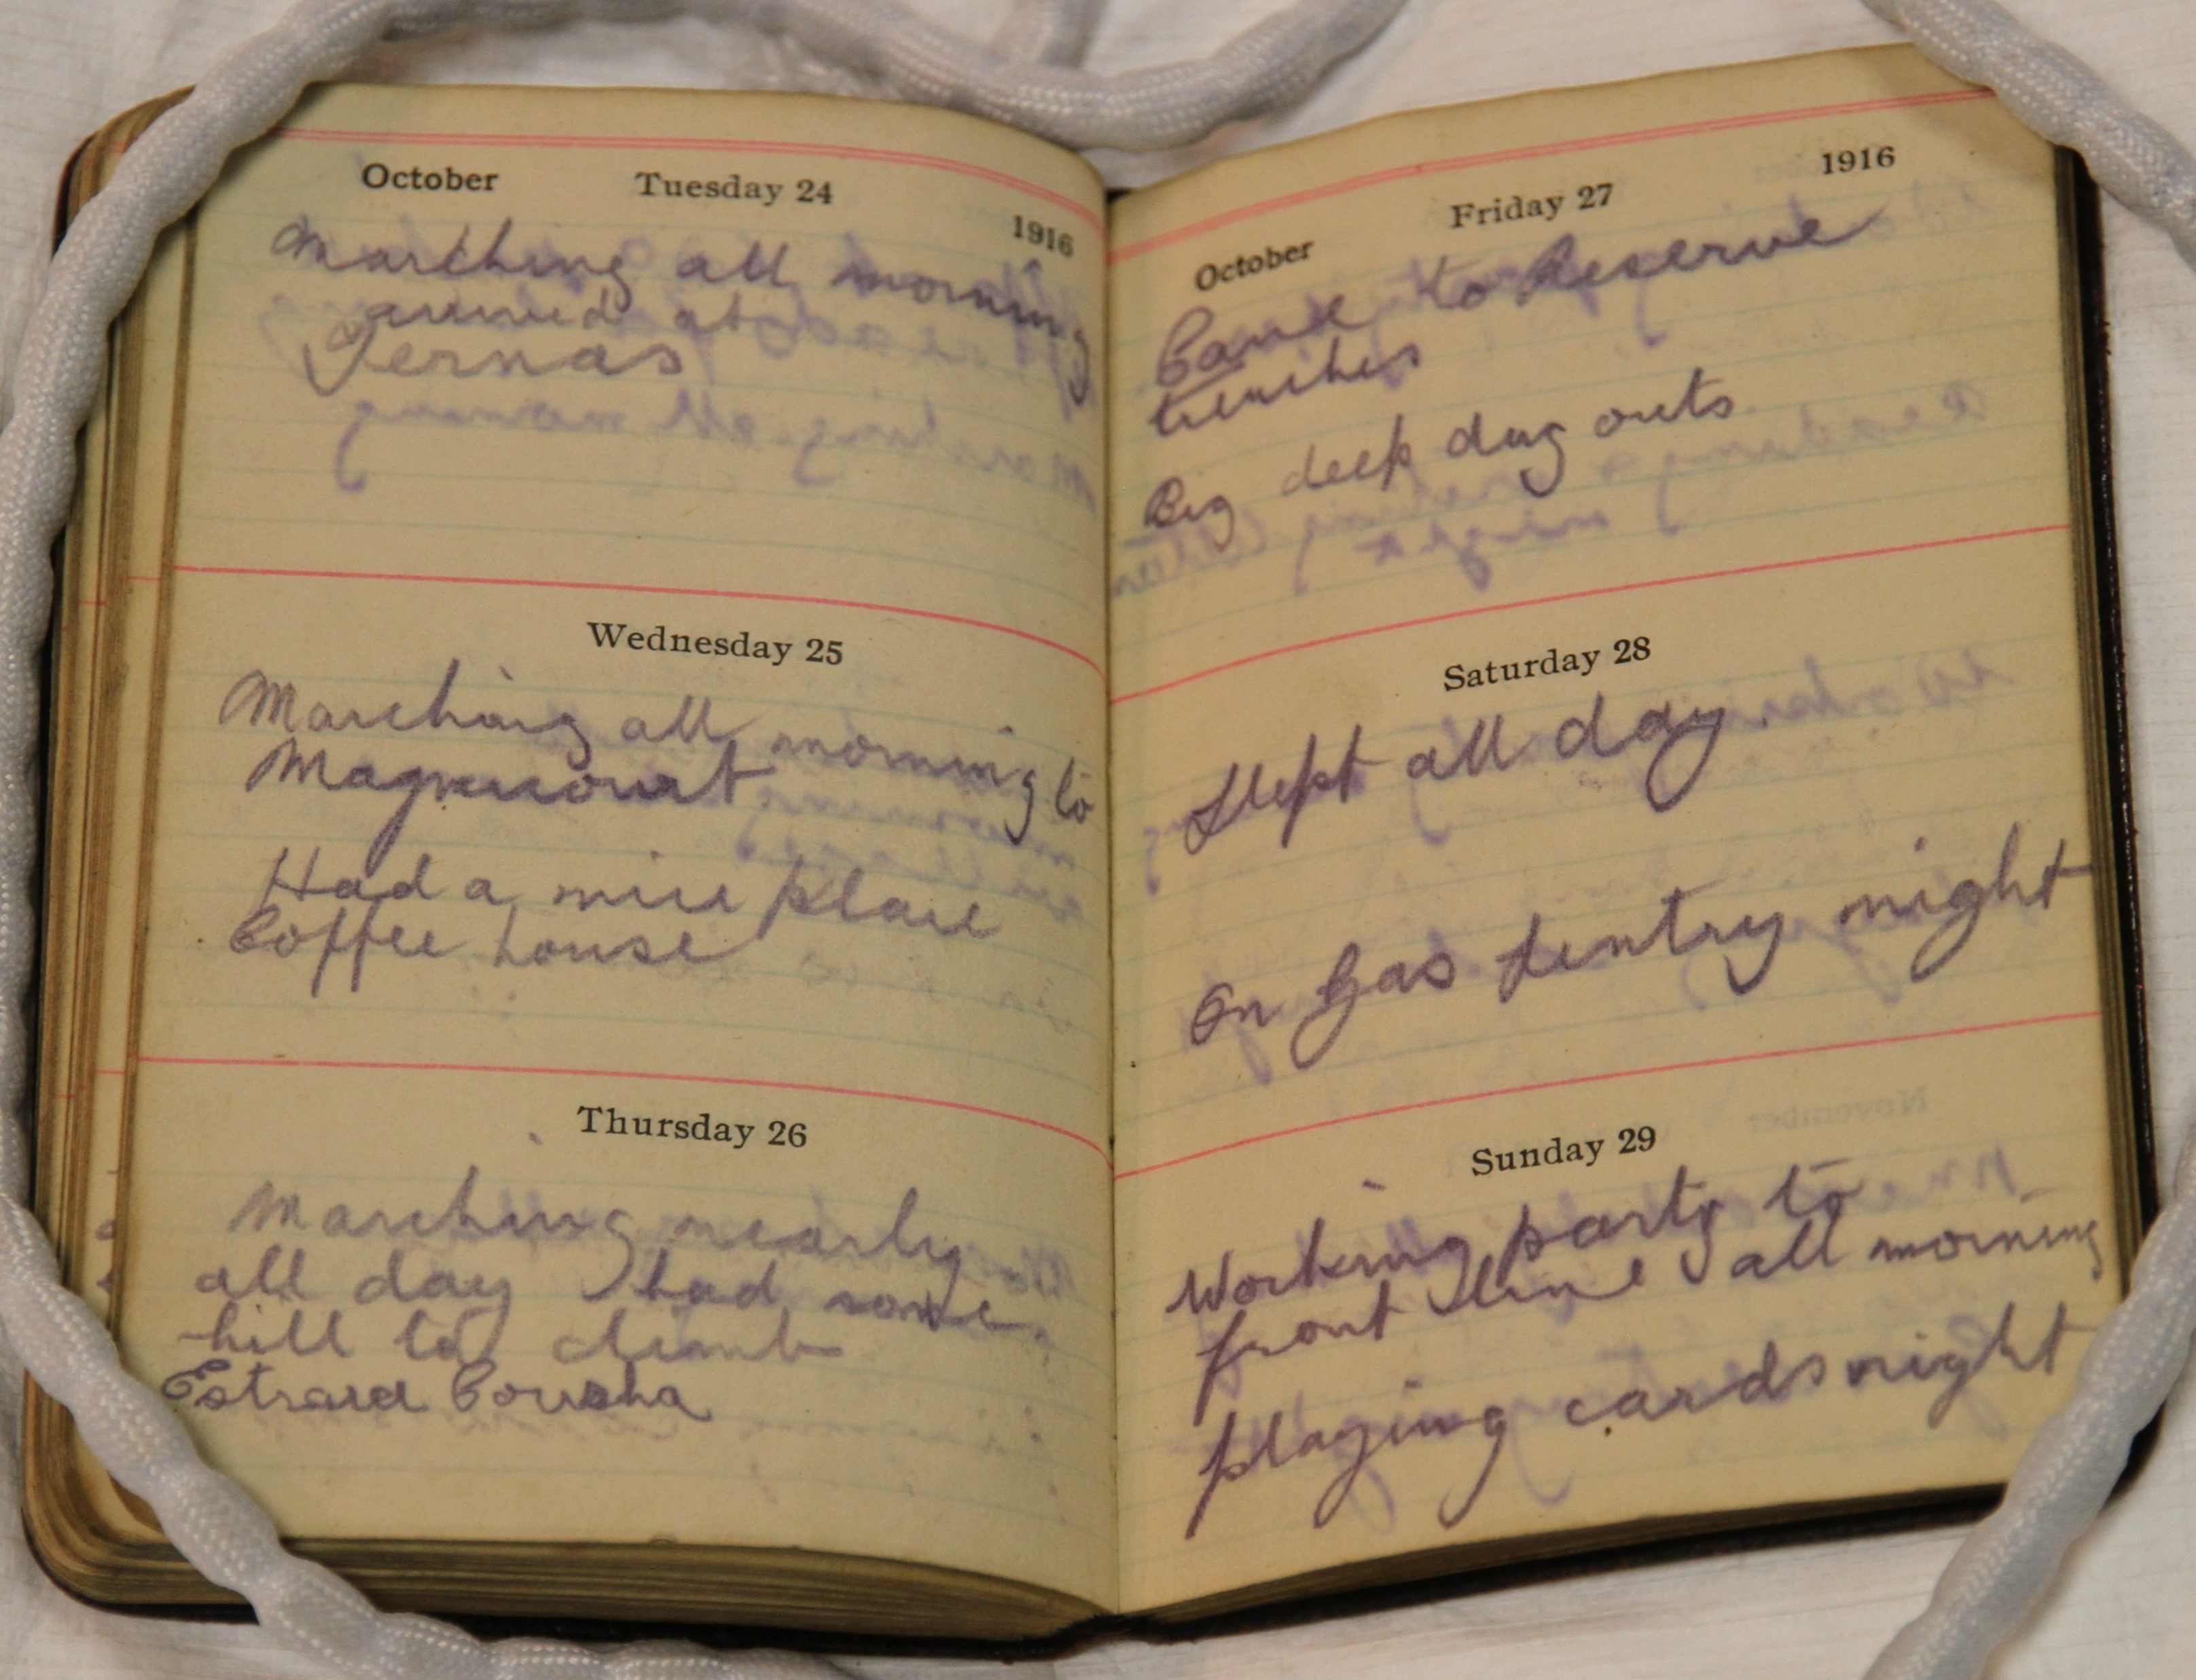 October Tuesday 24 1916
Marching all morning
arrived at
Ternas
Wednesday 25
Marching all morning to
Magnicourt
Had a nice place
Coffee house
Thursday 26
Marching nearly
all day had some
hill to climb
Estraee
October Friday 27 1916
Came to Reserve
trenches
Big deep dug outs
Saturday 28
Slept all day
On Gas sentry night
Sunday 29
Working party to
front line all morning
playing cards night